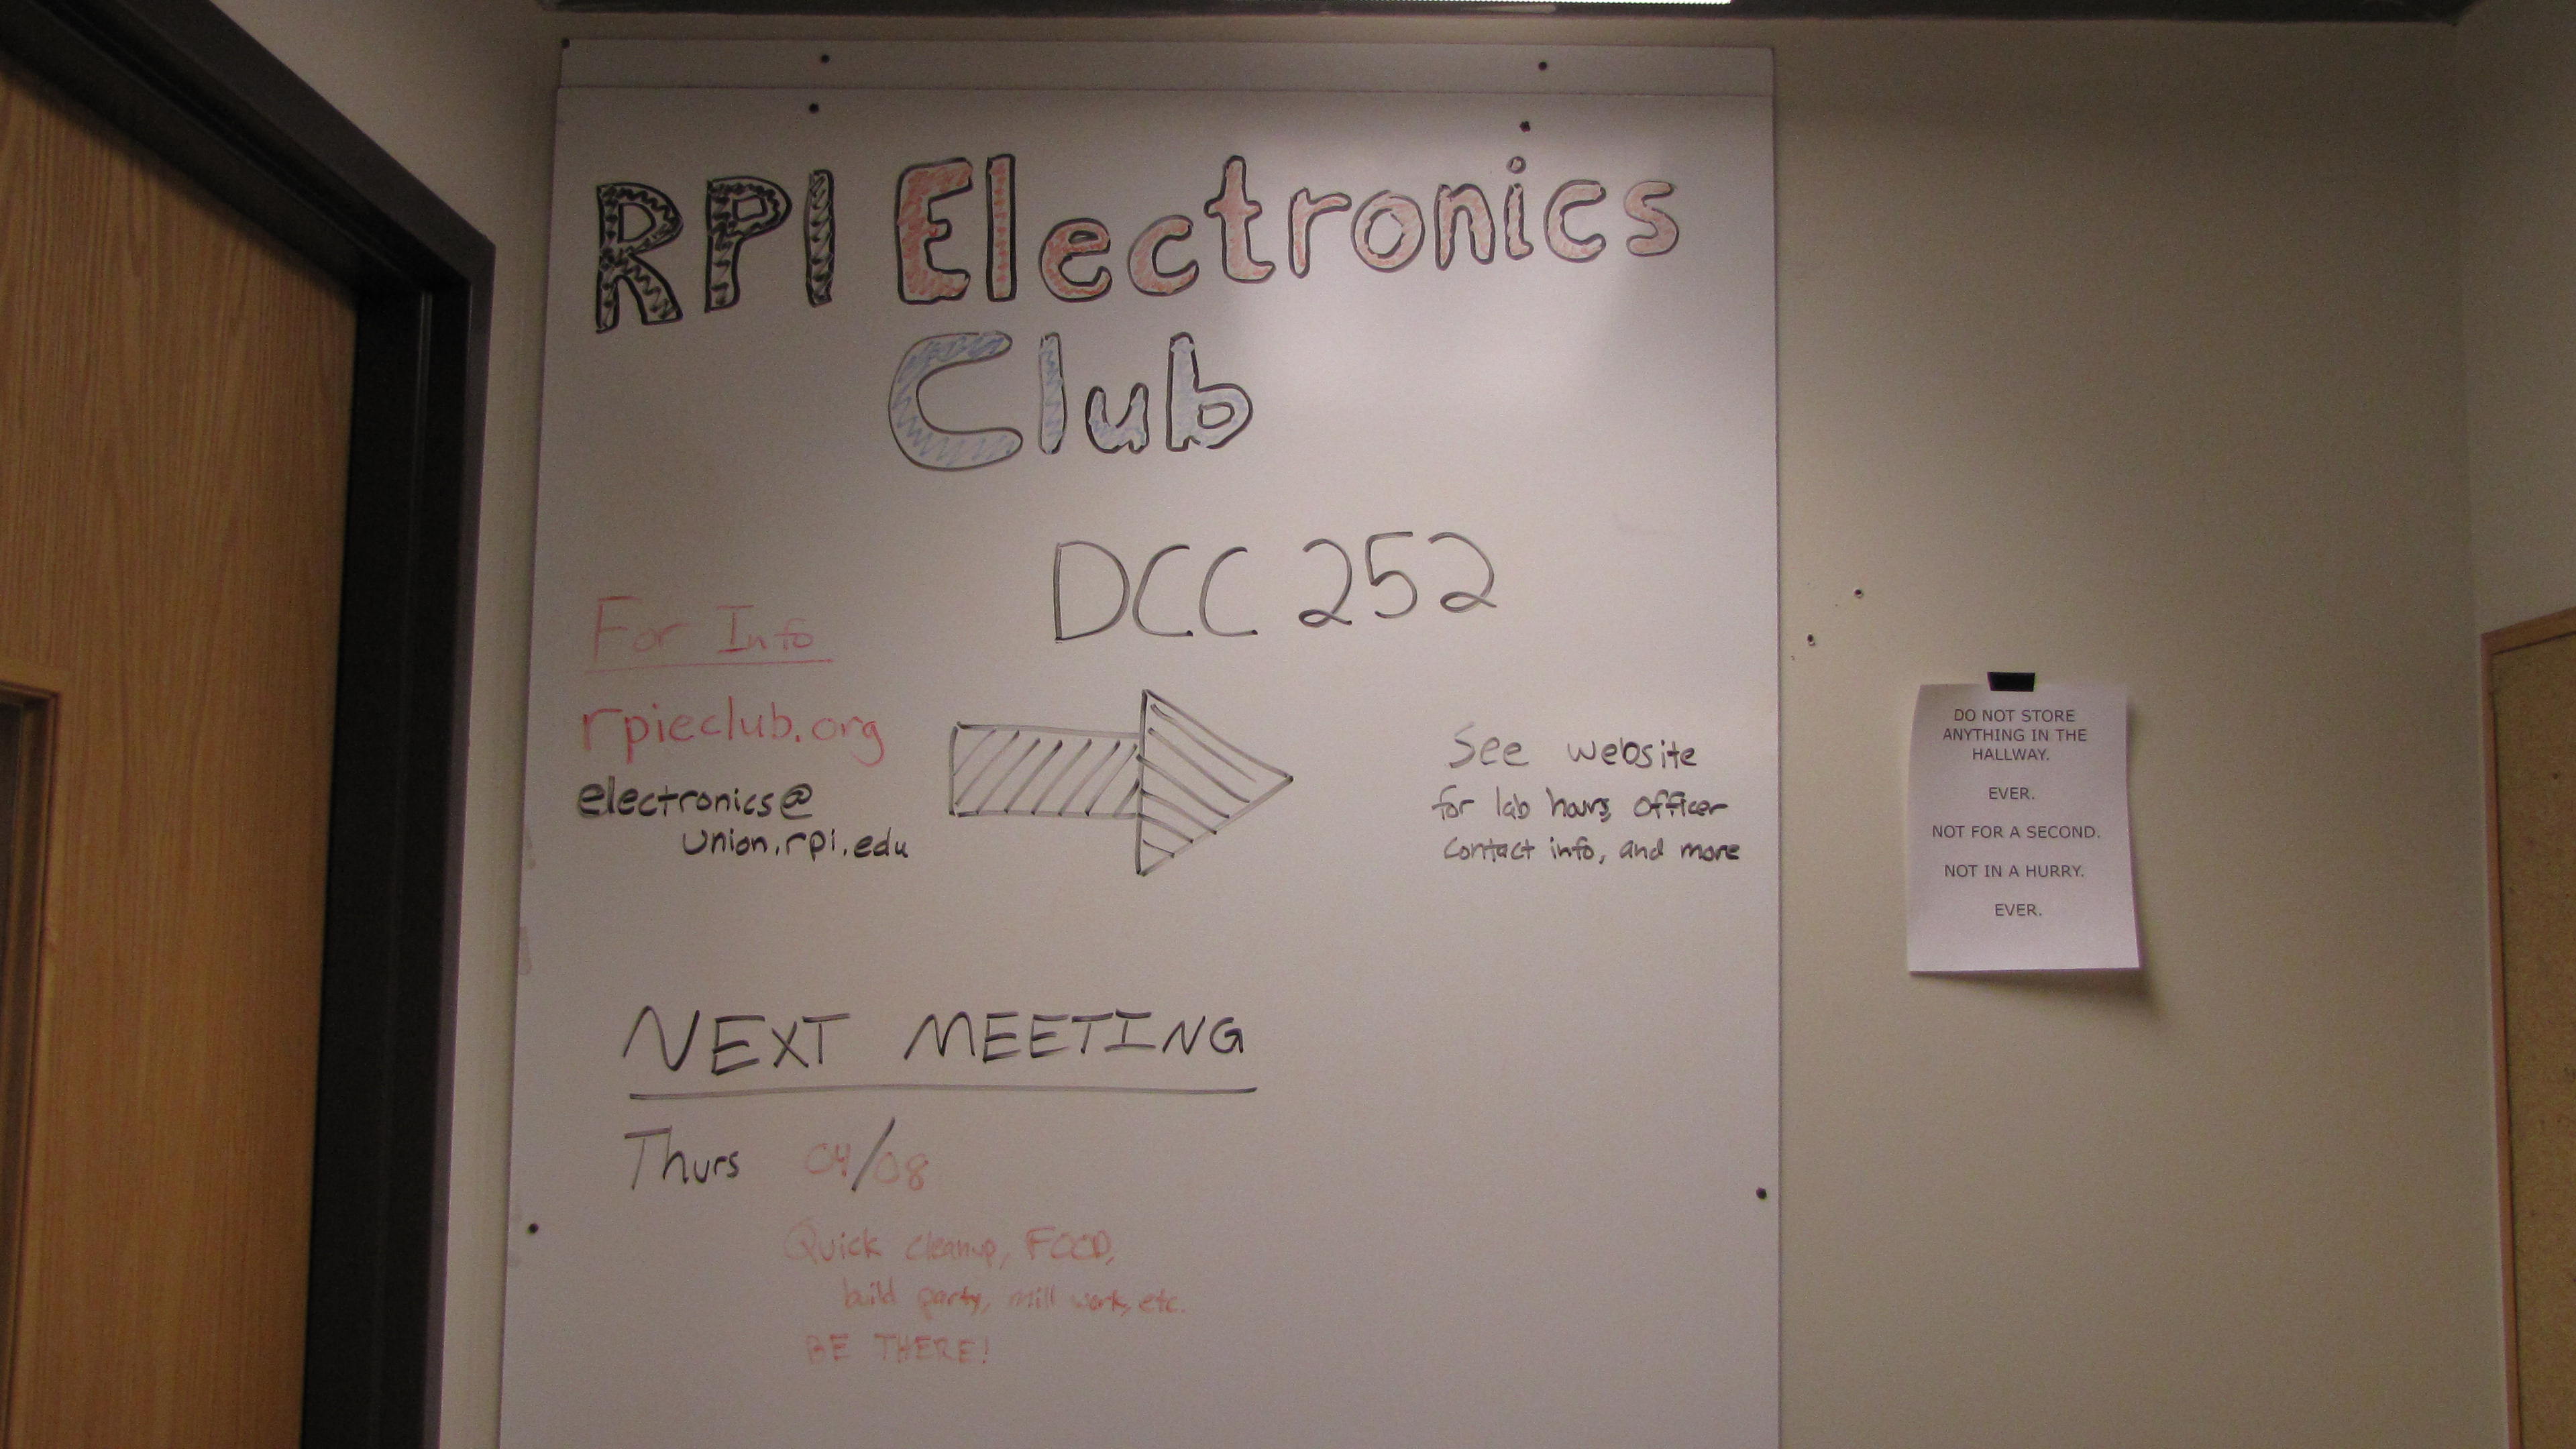 RPI Electronics
Club
DCC 252
For Info
rpieclub.org
electronics@
union.rpi.edu
See website
for lab hours, officer
contact info, and more
NEXT MEETING
Thurs 04/08
Quick cleanup, FOOD,
build party, mill work, etc.
BE THERE!
DO NOT STORE
ANYTHING IN THE
HALLWAY.
EVER.
NOT FOR A SECOND.
NOT IN A HURRY.
EVER.